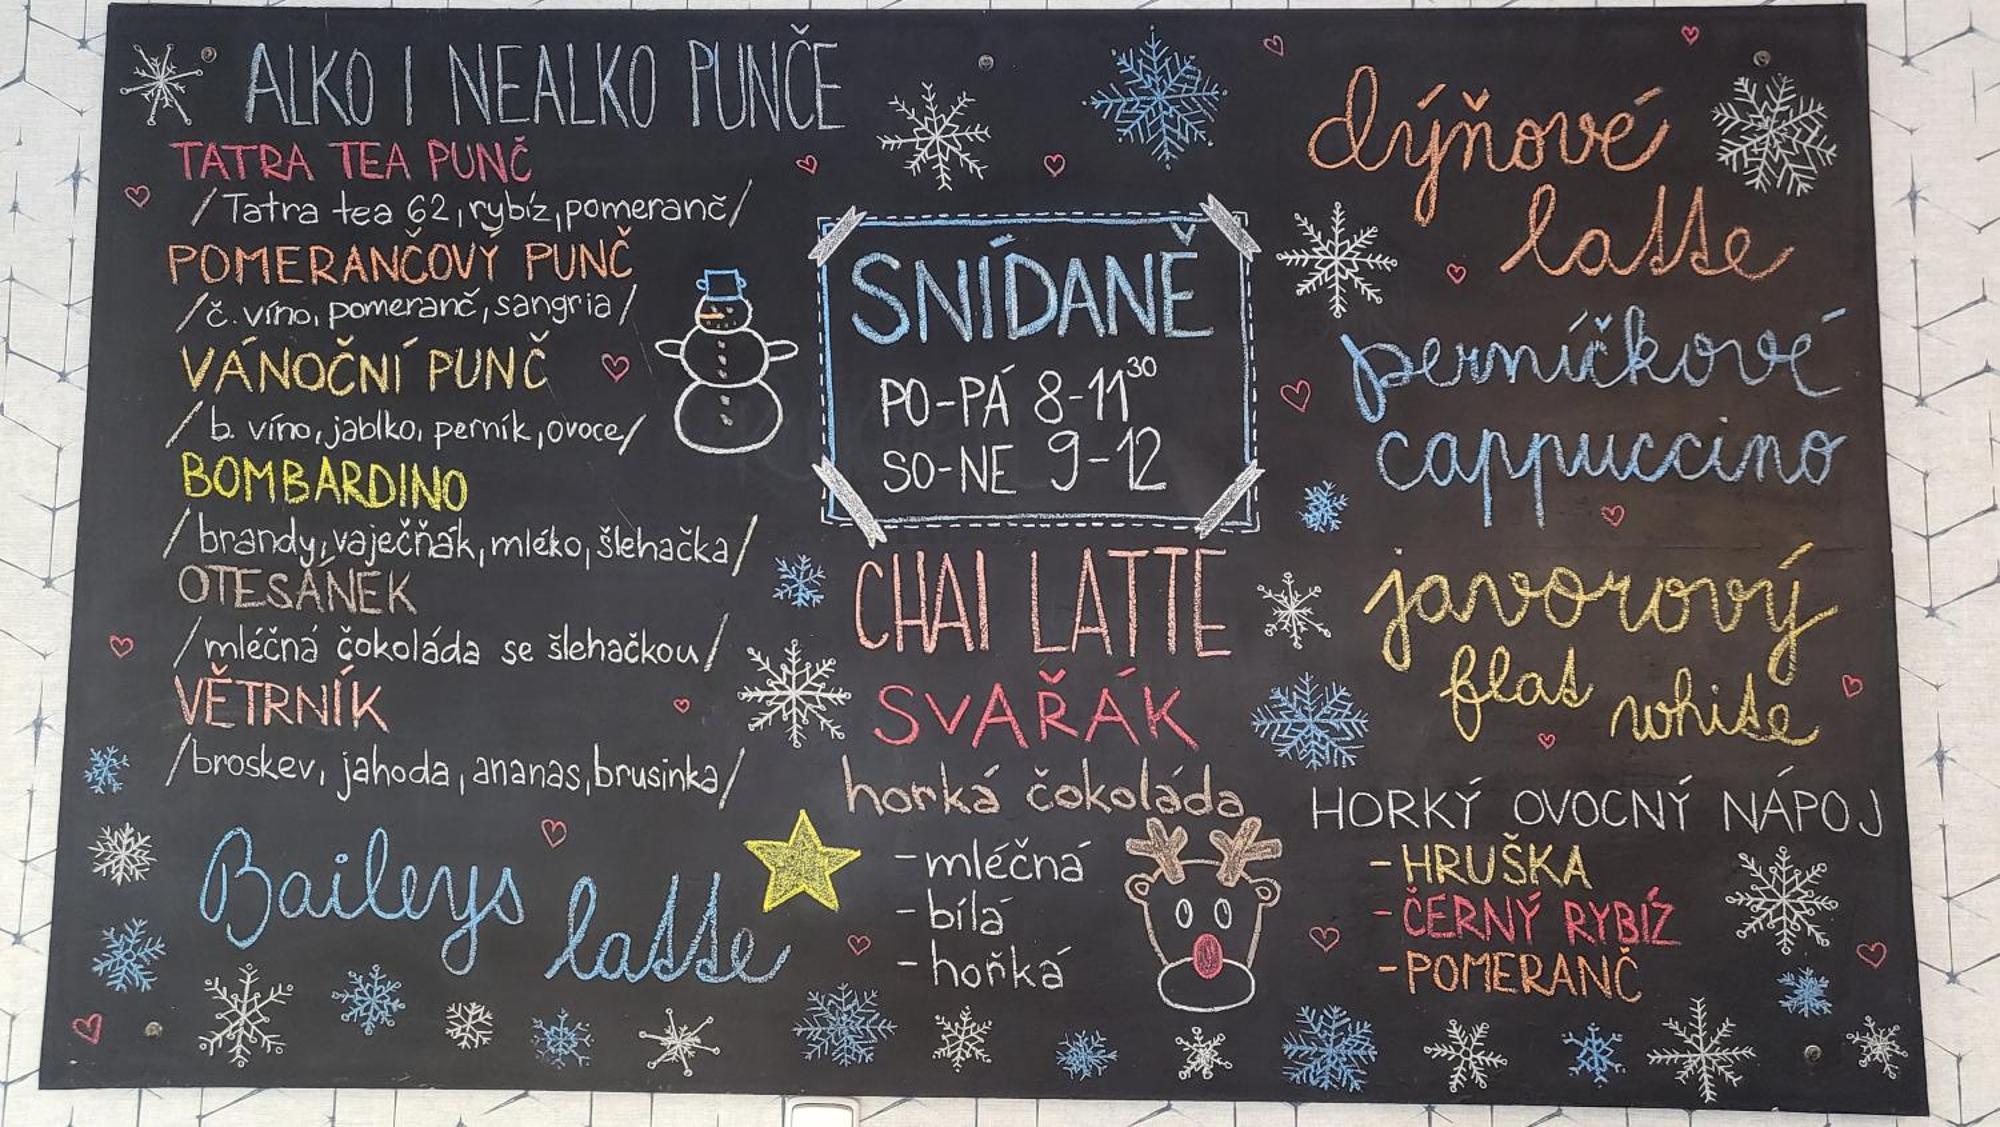 ALKO I NEALKO PUNČE
TATRA TEA PUNČ
/Tatra tea 62, rybíz, pomeranč/
POMERANČOVÝ PUNČ
/č. víno, pomeranč, sangria/
VÁNOČNÍ PUNČ
/b. víno, jablko, perník, ovoce/
BOMBARDINO
/brandy, vaječňák, mléko, šlehačka/
OTESÁNEK
/mléčná čokoláda se šlehačkou/
VĚTRNÍK
/broskev, jahoda, ananas, brusinka/
Baileys
latte
SNÍDANĚ
PO-PÁ 8-11³⁰
SO-NE 9-12
CHAI LATTE
SVAŘÁK
horká čokoláda
-mléčná
-bílá
-hořká
dýňové
latte
perníčkové
cappuccino
javorový
flat white
HORKÝ OVOCNÝ NÁPOJ
-HRUŠKA
-ČERNÝ RYBÍZ
-POMERANČ